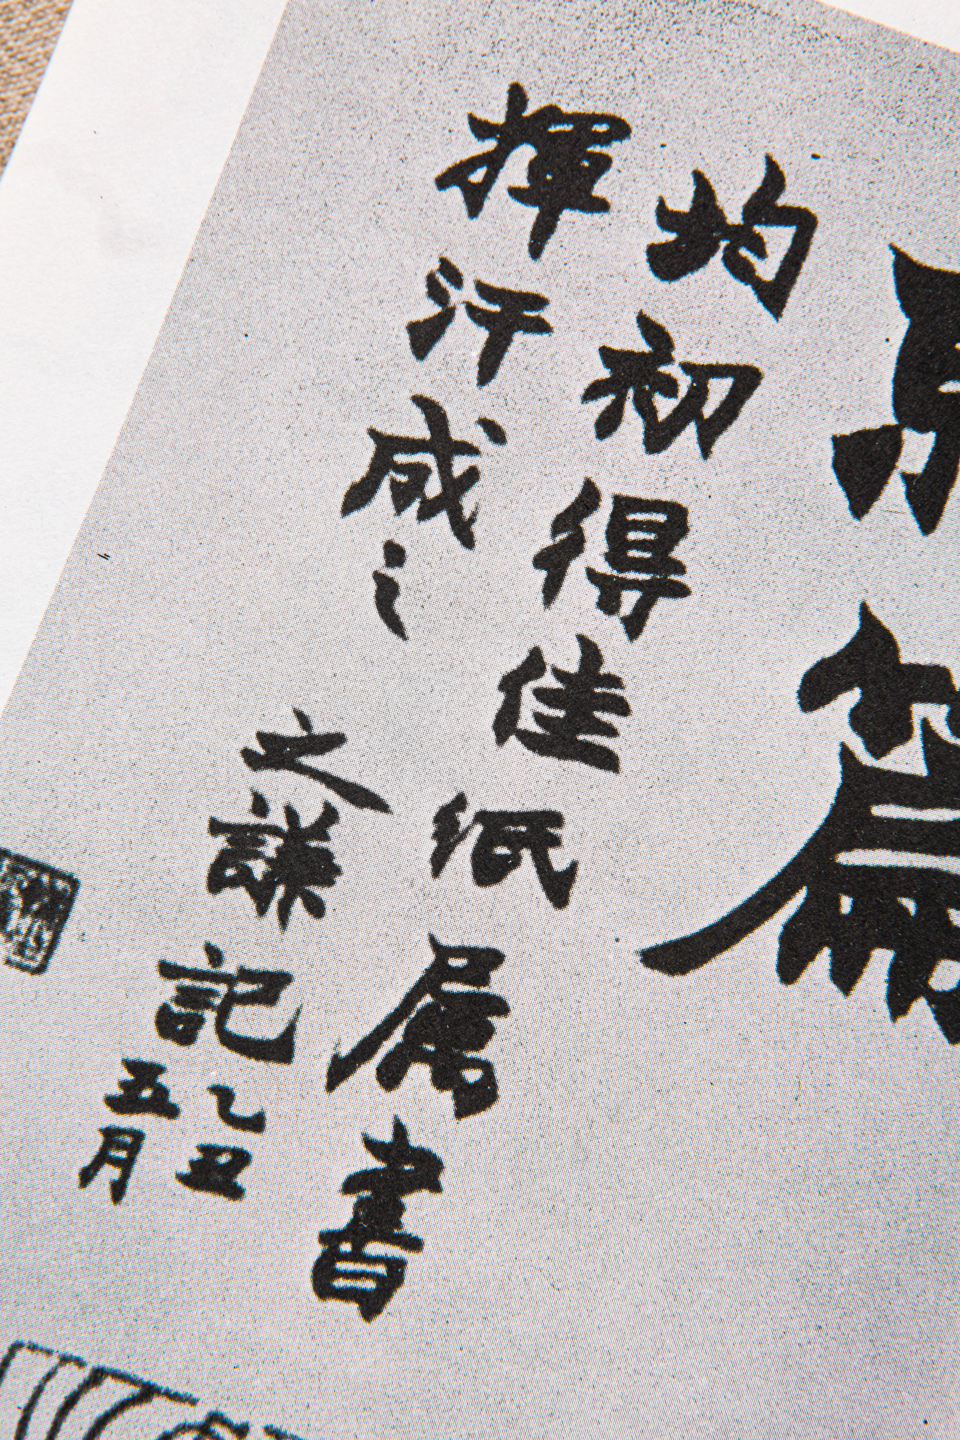 篇
均初得佳紙属書
揮汗成之
之謙記
乙丑
五月